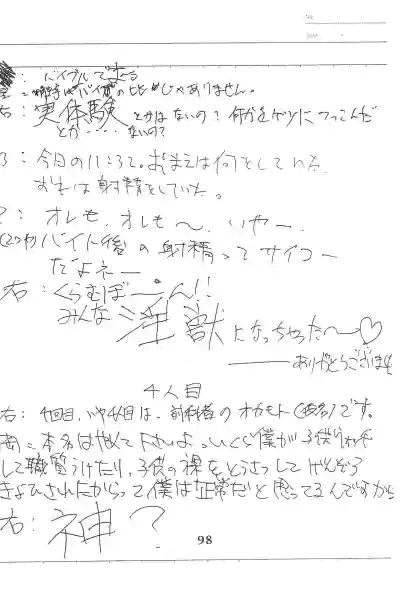 バイブルで
バイブの比じゃありません。
右：実体験とかはないの？何かをケツにつっこんだ
とか・・・・ないの？
3：今日の11:3に。おまえは何をしていた
おれは射精をしていた。
？：オレも、オレも〜、いやー、
バイト後の射精ってサイコー
だよネー
右：くらむぼーん!!
みんな淫獣になっちゃった〜♡
――ありがとうございま
4人目
右：4回目、いや4人目は、前科者のオカモト(仮名)です。
岡：本名はやめて下さいよ。いくら僕が子供
して職質うけたり、子供の裸をとうさつしてげんぞう
きょひされたからって僕は正常だと思ってるんですから
右：神？
98